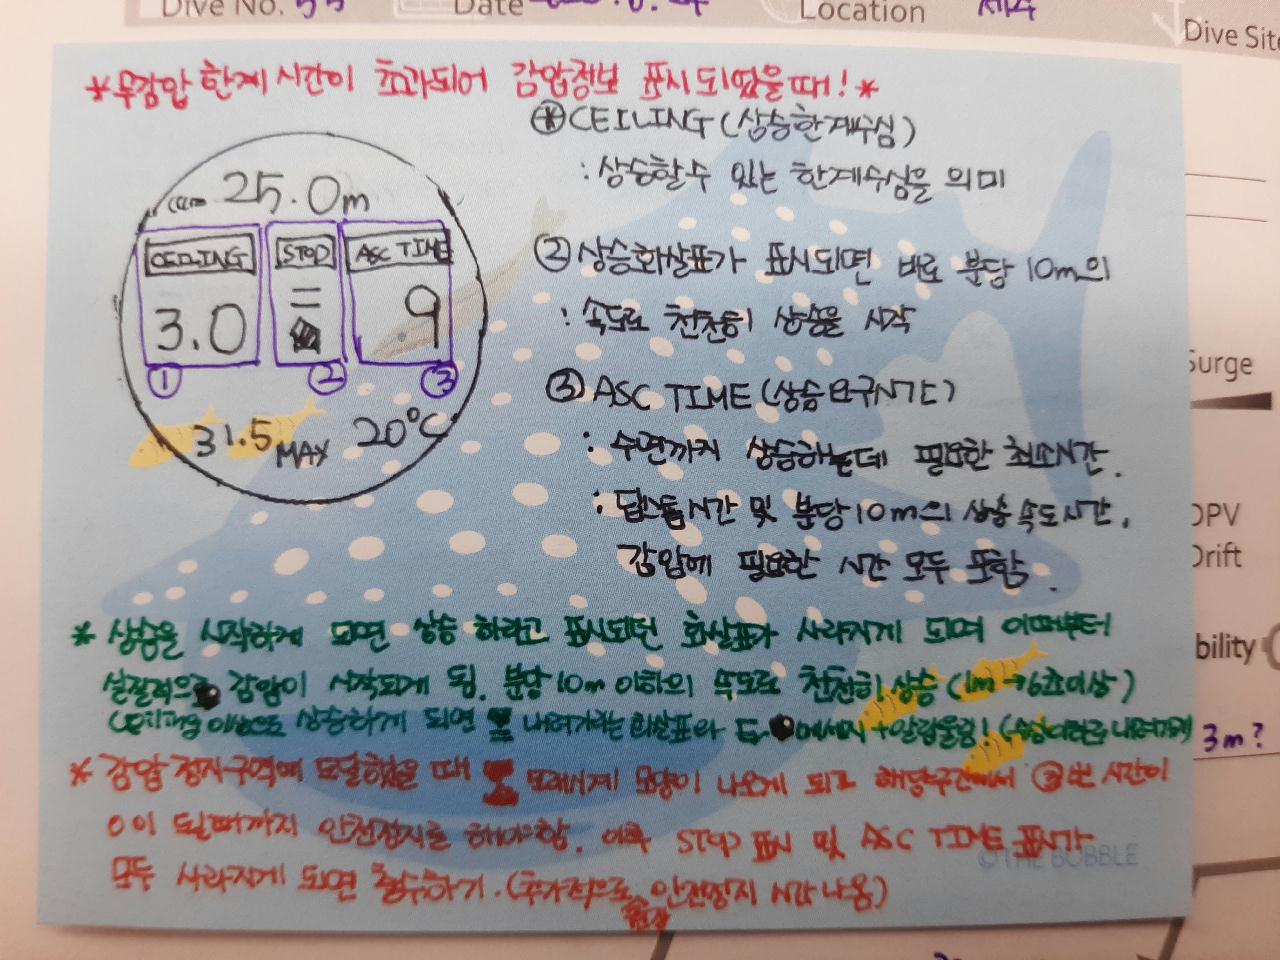 Dive No.
Date
Location
제주
Dive Site
*무감압 한계 시간이 초과되어 감압정보 표시 되었을 때! *
25.0m
CEILING STOP ASC TIME
3.0 = 9
① ② ③
31.5 MAX 20°C
CEILING (상승한계수심)
: 상승할수 있는 한계수심을 의미
② 상승화살표가 표시되면 바로 분당 10m의
: 속도로 천천히 상승을 시작
③ ASC TIME (상승요구시간)
: 수면까지 상승하는데 필요한 최소시간.
: 딥스톱시간 및 분당10m의 상승속도시간,
감압에 필요한 시간 모두 포함.
Surge
DPV
Drift
bility
* 상승을 시작하게 되면 상승 하라고 표시되던 화살표가 사라지게 되며 이때부터
실질적으로 감압이 시작되게 됨. 분당 10m 이하의 속도로 천천히 상승 (1m → 6초이상)
Ceiling 이상으로 상승하게 되면 내려가라는 화살표와 알람울림!
3m?
* 감압 정지구역에 도달했을 때 모래시계 모양이 나오게 되고 해당구간에서 ③번 시간이
0이 될때까지 안전정지를 해야함. 이후 STOP 표시 및 ASC TIME 표시가
모두 사라지게 되면 출수하기. (추가적으로 안전정지 시간 나옴)
권장
©THE BUBBLE